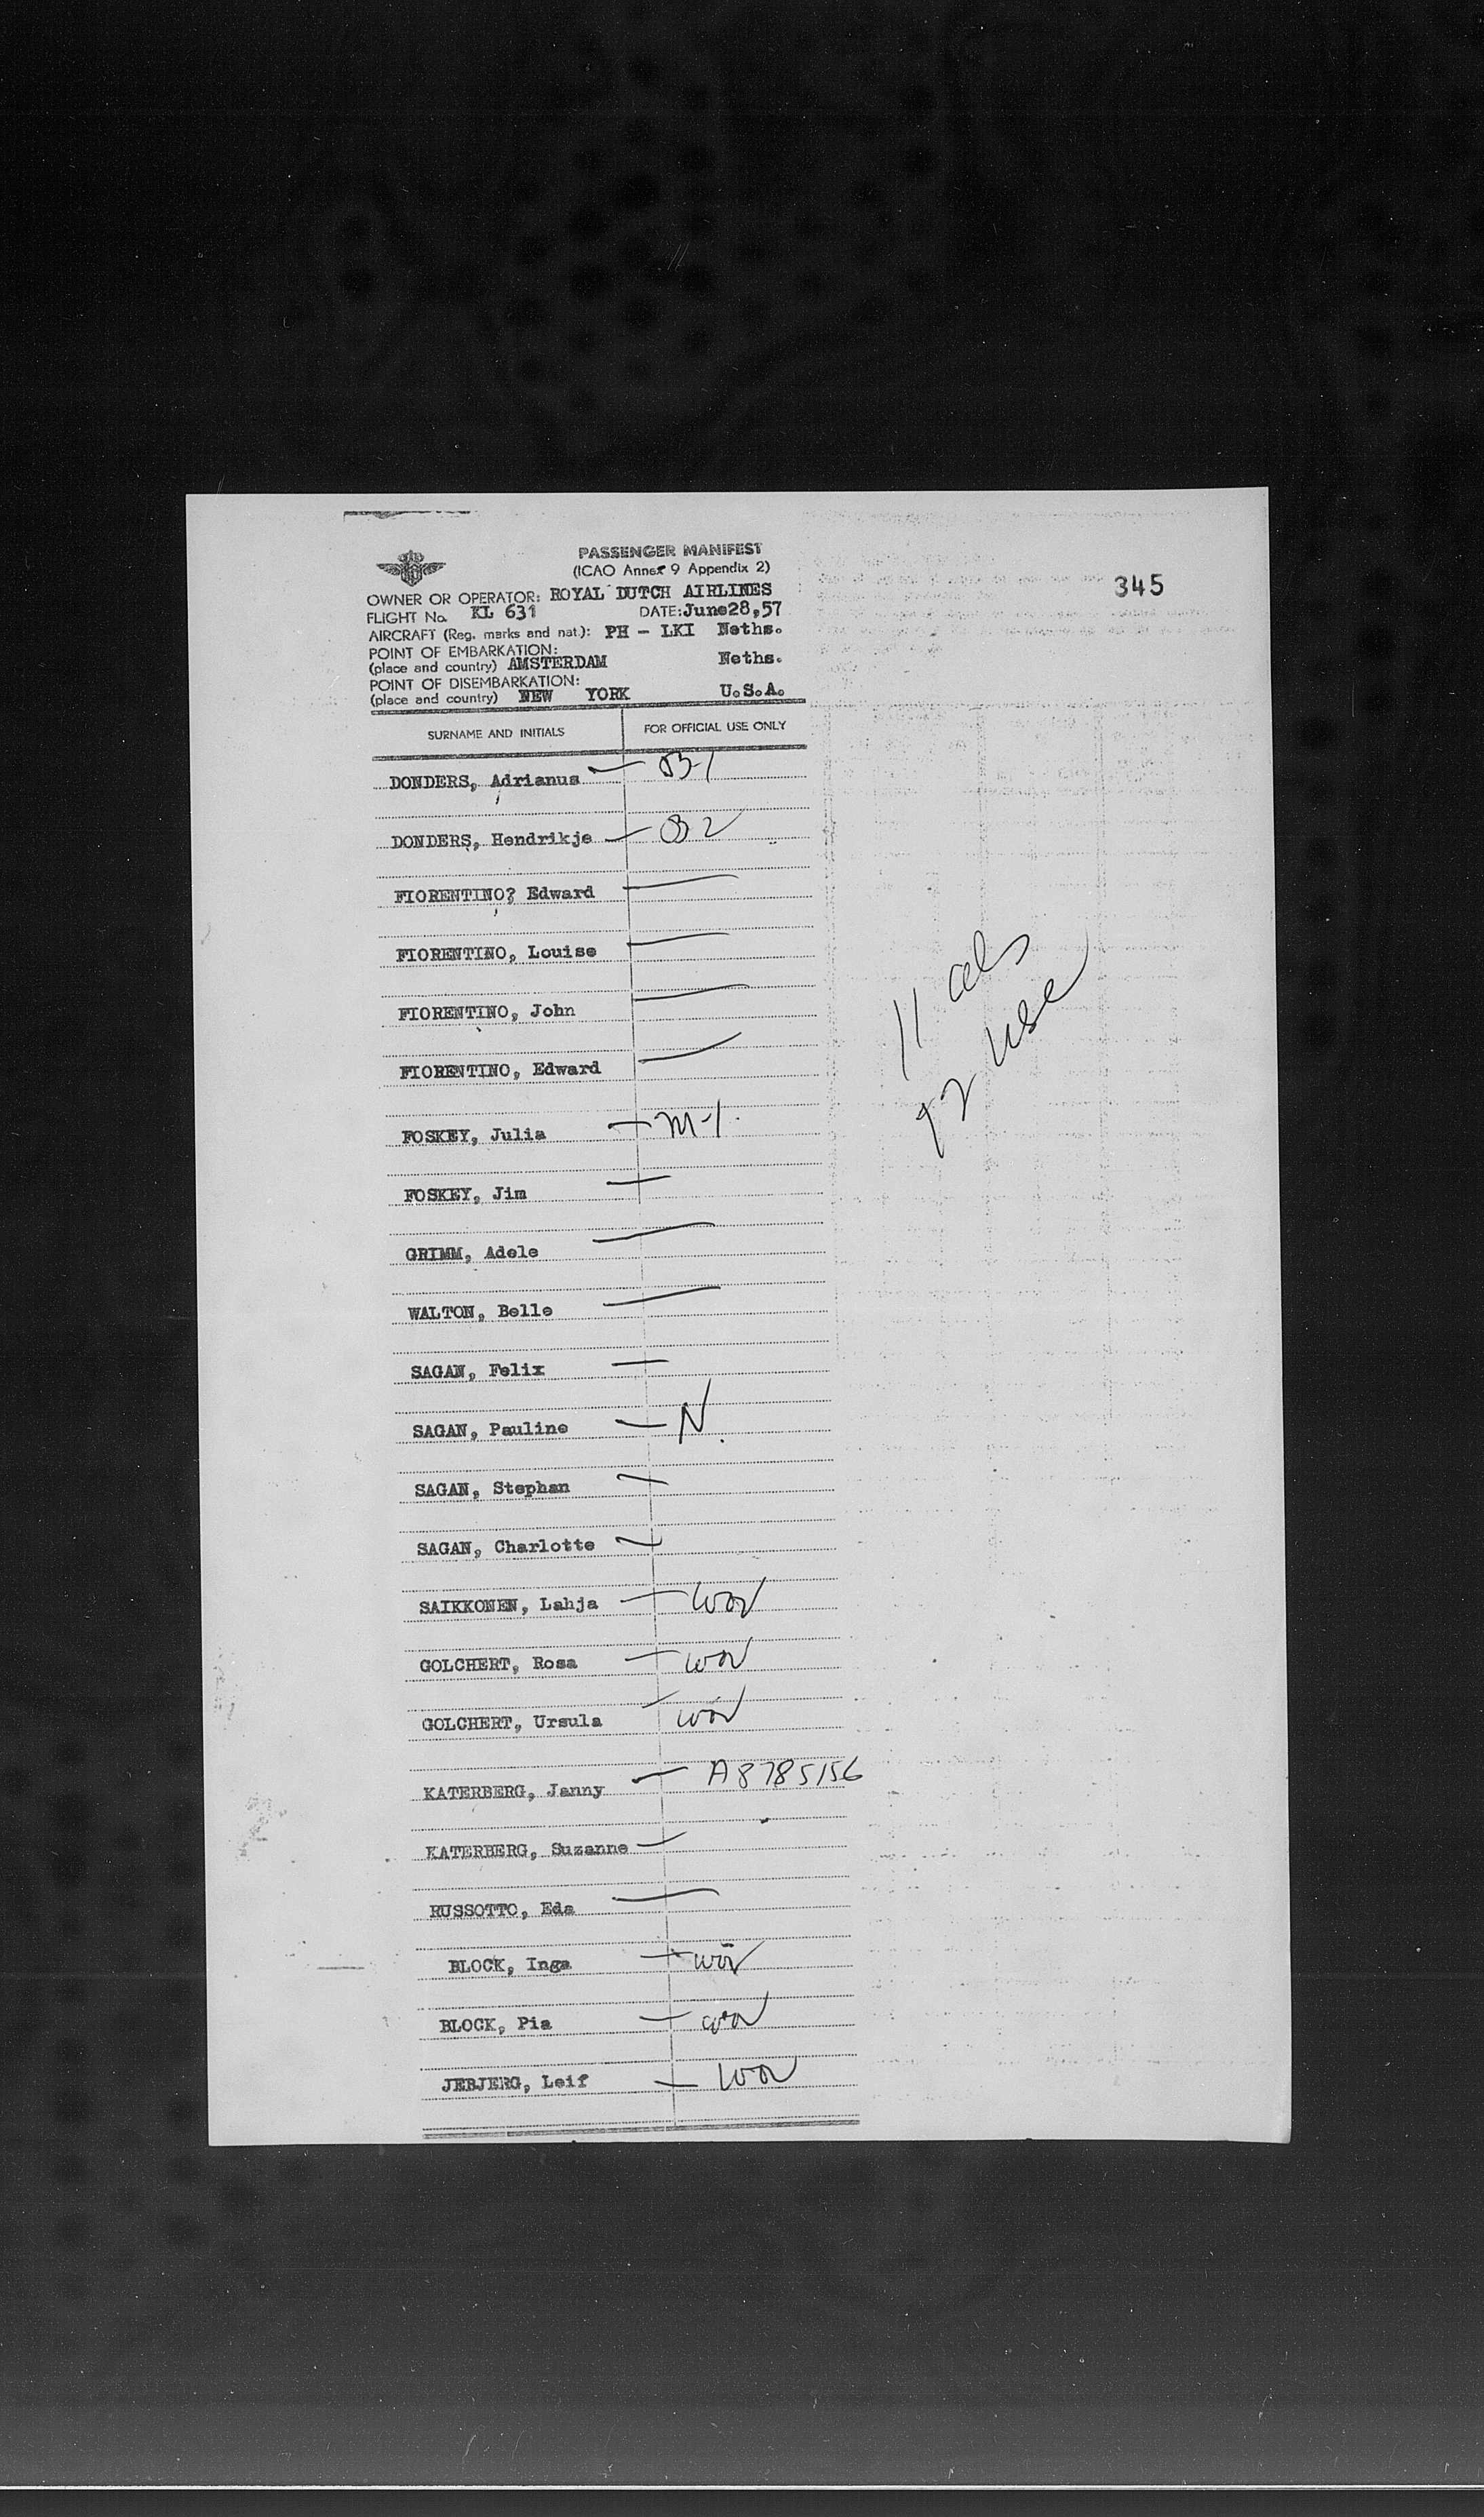 PASSENGER MANIFEST
(ICAO Annex 9 Appendix 2)
345
OWNER OR OPERATOR: ROYAL DUTCH AIRLINES
FLIGHT No. KL 631 DATE: June28,57
AIRCRAFT (Reg. marks and nat.): PH - LKI Neths.
POINT OF EMBARKATION:
(place and country) AMSTERDAM Neths.
POINT OF DISEMBARKATION:
(place and country) NEW YORK U.S.A.
SURNAME AND INITIALS FOR OFFICIAL USE ONLY
DONDERS, Adrianus B-1
DONDERS, Hendrikje B2
FIORENTINO? Edward
FIORENTINO, Louise
FIORENTINO, John
FIORENTINO, Edward
11 als
42 use
FOSKEY, Julia M-1.
FOSKEY, Jim
GRIMM, Adele
WALTON, Belle
SAGAN, Felix
SAGAN, Pauline N.
SAGAN, Stephan
SAGAN, Charlotte
SAIKKONEN, Lahja
GOLCHERT, Rosa
GOLCHERT, Ursula
KATERBERG, Janny A8785156
KATERBERG, Suzanne
RUSSOTTO, Eda
BLOCK, Inga
BLOCK, Pia
JEBJERG, Leif